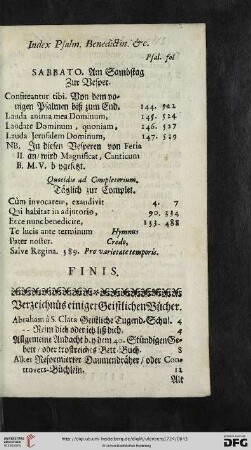 Index Psalm. Benedictin. &c.
Psal. fol
SABBATO. Am Sambstag
Zur Vesper.
Confiteantur tibi. Von dem vo-
rigen Psalmen biß zum End. 144. 522
Lauda anima mea Dominum, 145. 524
Laudate Dominum, quoniam, 146. 527
Lauda Jerusalem Dominum, 147. 529
NB. In diesen Vesperen von Feria
II. an/ wird Magnificat, Canticum
B. M. V. b ygesetzt.
Quotidie ad Completorium,
Täglich zur Complet.
Cùm invocarem, exaudivit 4. 7
Qui habitat in adjutorio, 90. 334
Ecce nunc benedicite, 133. 488
Te lucis ante terminum Hymnus
Pater noster. Credo,
Salve Regina. 589. Pro varietate temporis.
FINIS.
Verzeichnüs einiger Geistlichen Bücher.
Abraham â S. Clara Geistliche Tugend-Schul. 4
-- Reim dich oder ich liß dich. 4
Allgemeine Andacht b y dem 40. Stündigen Ge-
bett/ oder trostreiches Bett-Buch. 8
Alker Reformierter Daumendräher/ oder Con-
trovers-Büchlein. 12
Alt
http://digi.ub.uni-heidelberg.de/diglit/
© Universitätsbibliothek Heidelberg